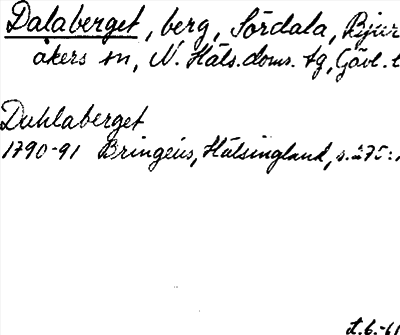 Dalaberget, berg, Sördala, Bjur
åkers sn, N. Häls. doms. tg, Gävl. l
Duhlaberget
1790-91 Bringéus, Hälsingland, s. 275:1
t.6.-61